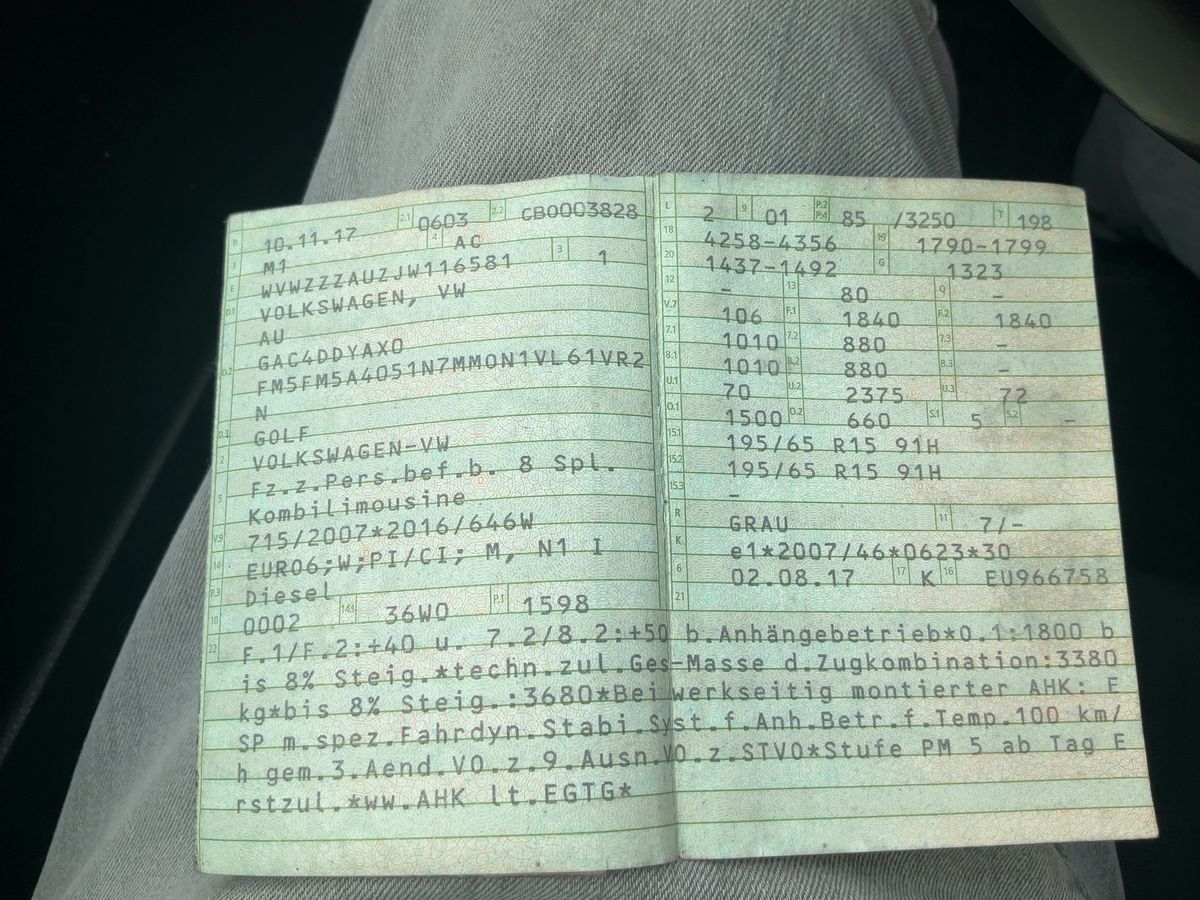 B 10.11.17 2.1 0603 2.2 CB0003828
J M1 4 AC
E WVWZZZAUZJW116581 3 1
D.1 VOLKSWAGEN, VW
AU
D.2 GAC4DDYAX0
FM5FM5A4051N7MMON1VL61VR2
N
D.3 GOLF
2 VOLKSWAGEN-VW
5 Fz.z.Pers.bef.b. 8 Spl.
Kombilimousine
V.9 715/2007*2016/646W
14 EURO6;W;PI/CI; M, N1 I
P.3 Diesel
10 0002 14.1 36W0 P.1 1598
L 2 9 01 P.2 P.4 85 /3250 T 198
18 4258-4356 19 1790-1799
20 1437-1492 G 1323
12 - 13 80 Q -
V.7 106 F.1 1840 F.2 1840
7.1 1010 7.2 880 7.3 -
8.1 1010 8.2 880 8.3 -
U.1 70 U.2 2375 U.3 72
O.1 1500 O.2 660 S.1 5 S.2 -
15.1 195/65 R15 91H
15.2 195/65 R15 91H
15.3 -
R GRAU 11 7/-
K e1*2007/46*0623*30
6 02.08.17 17 K 16 EU966758
21
22 F.1/F.2:+40 u. 7.2/8.2:+50 b.Anhängebetrieb*O.1:1800 b
is 8% Steig.*techn.zul.Ges-Masse d.Zugkombination:3380
kg*bis 8% Steig.:3680*Bei werkseitig montierter AHK: E
SP m.spez.Fahrdyn.Stabi.Syst.f.Anh.Betr.f.Temp.100 km/
h gem.3.Aend.VO.z.9.Ausn.VO.z.STVO*Stufe PM 5 ab Tag E
rstzul.*ww.AHK lt.EGTG*